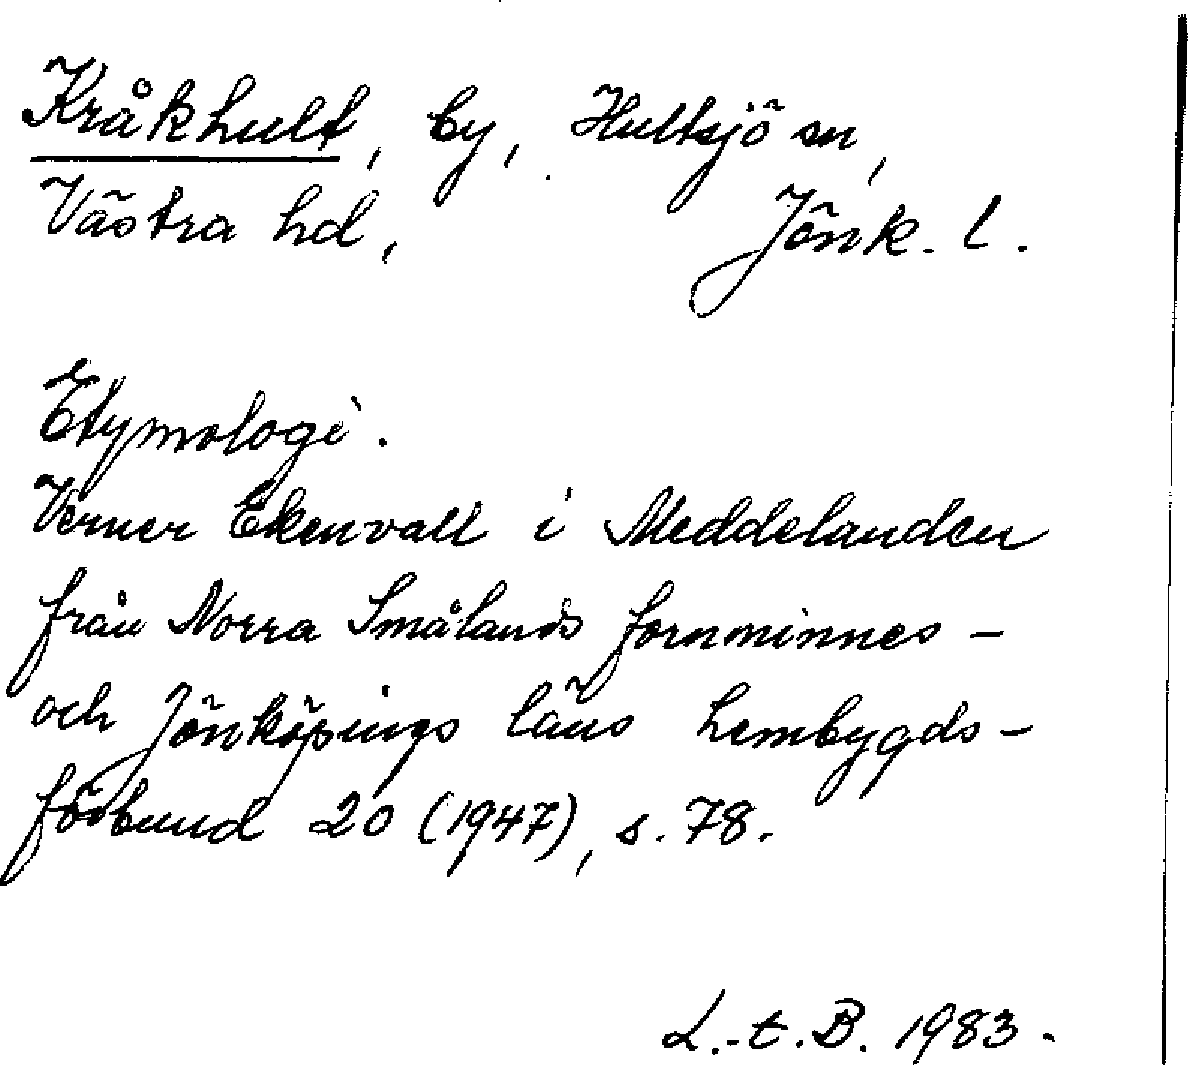 Kråkhult, by, Hultsjö sn,
Västra hd, Jönk. l.
Etymologi.
Verner Ekenvall i Meddelanden
från Norra Smålands fornminnes-
och Jönköpings läns hembygds-
förbund 20 (1947), s. 78.
L.-t. B. 1983.